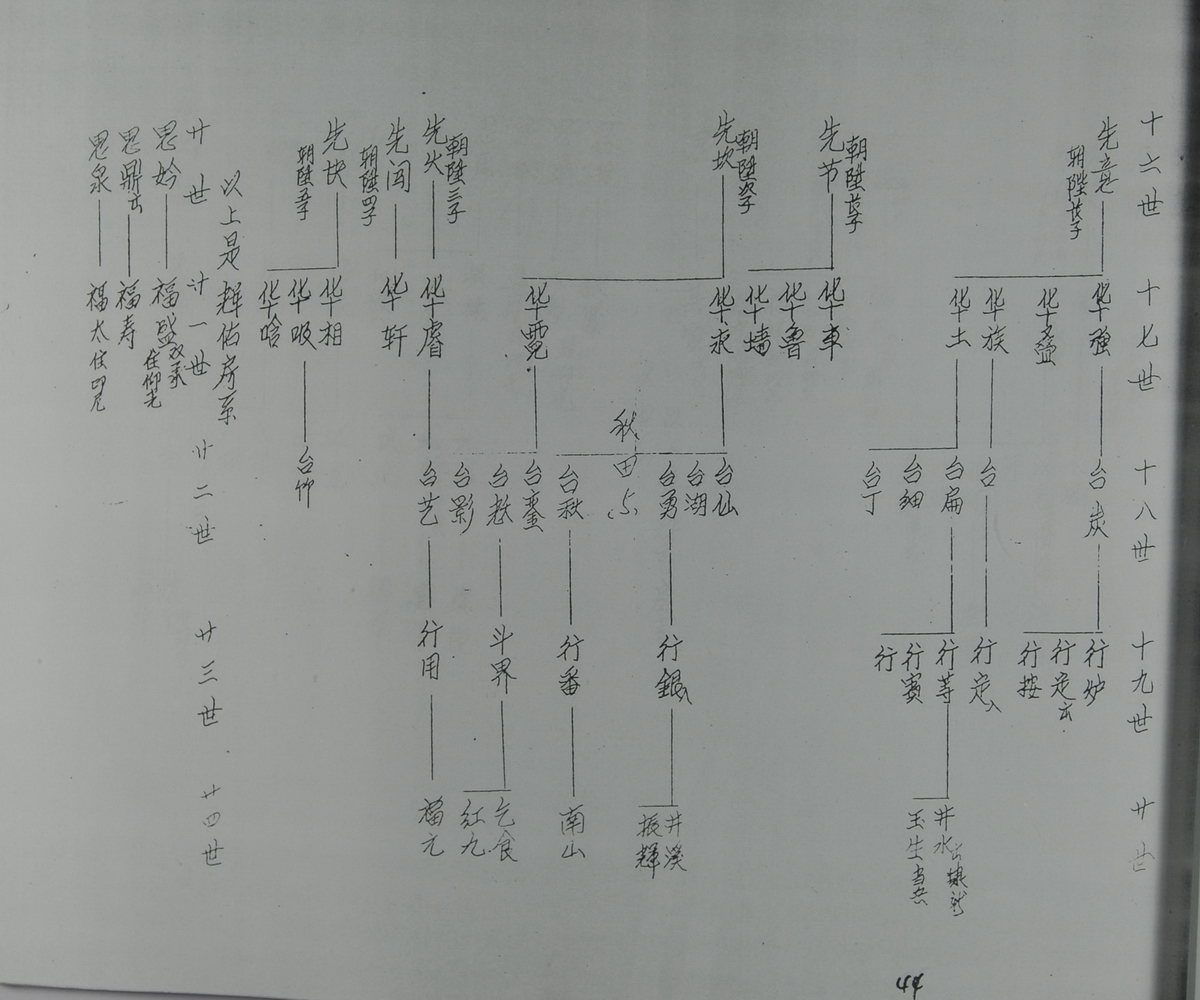 十六世
十七世
十八世
十九世
廿世
先
朝陞長子
华强
华
华族
华土
台炭
台
台扁
台细
台丁
行炉
行定玄
行按
行定
行等
行宾
行
井水
玉生
先节
朝陞長子
华車
华鲁
华墙
先坎
朝陞次子
华永
华霓
台仙
台湖
台勇
秋田占
台秋
台銮
台敖
台影
行銀
行番
斗界
井溪
振輝
南山
乞食
红九
先火
朝陞三子
华睿
台艺
行用
福元
先闯
朝陞四子
华轩
先块
朝陞五子
华相
华吸
华啥
台仰
以上是輝佑房系
廿世
廿一世
廿二世
廿三世
廿四世
思妗
福盛
思鼎玄
福寿
思泉
福太住
44